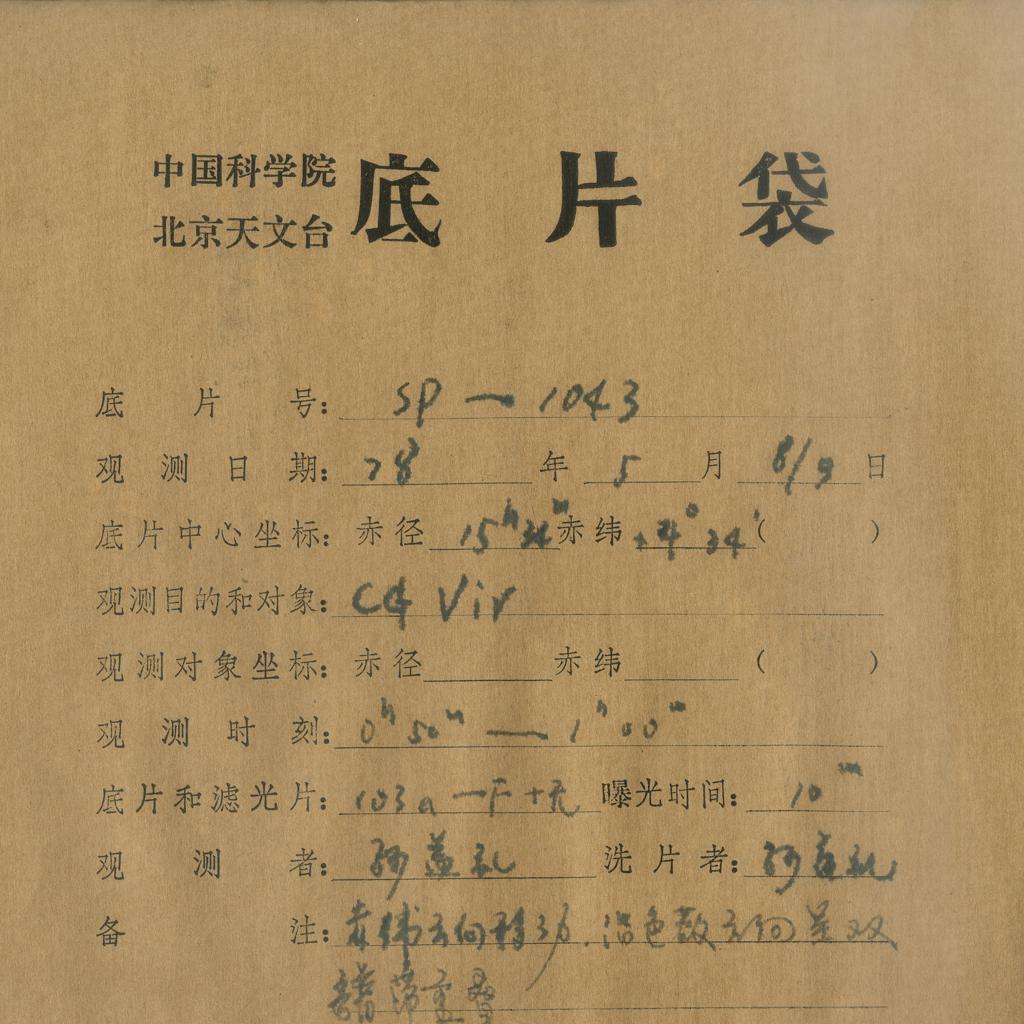 中国科学院
北京天文台
底片袋
底片号: SP — 1043
观测日期: 78 年 5 月 8/9 日
底片中心坐标: 赤径 15ʰ 赤纬 24' ( )
观测目的和对象: Vir
观测对象坐标: 赤径 赤纬 ( )
观测时刻: 0ʰ 50ᵐ — 1ʰ 00ᵐ
底片和滤光片: 103a—F+无 曝光时间: 10ᵐ
观测者: 孙益礼 洗片者: 孙益礼
备注: 赤纬方向移动. 沿色散方向是双